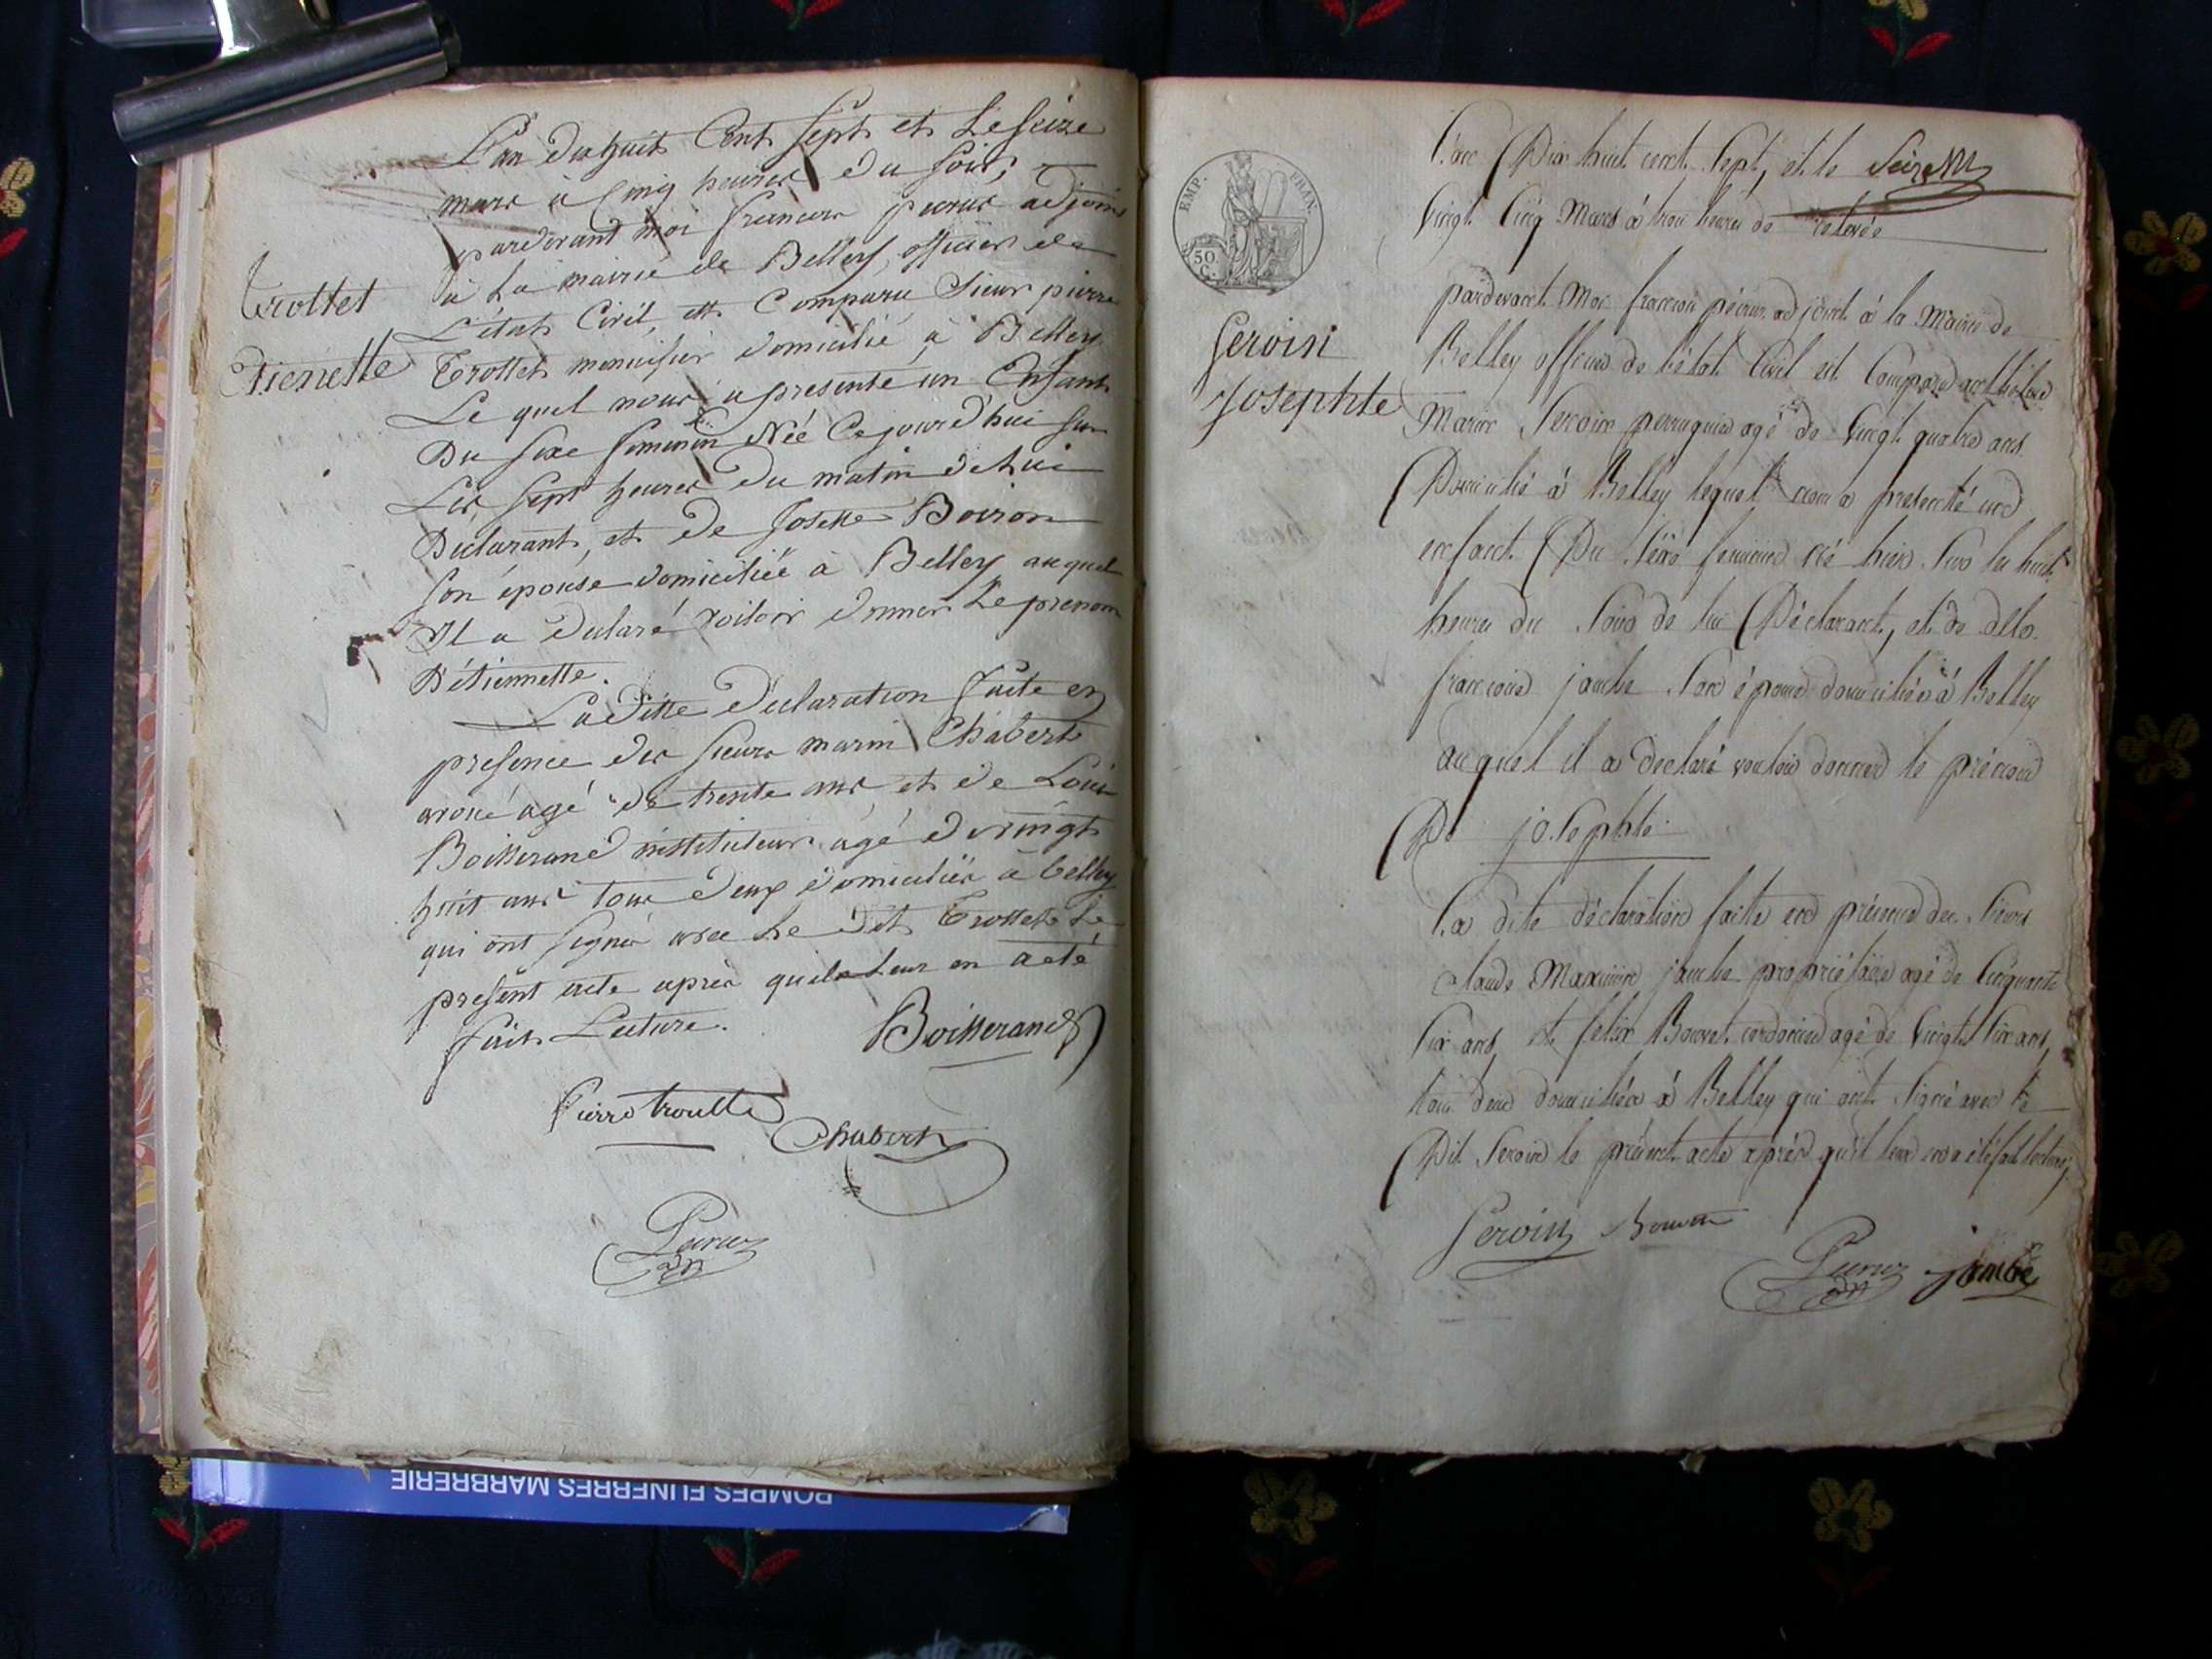 L'an dix huit Cent Sept et Le Seize
mars à Cinq heures du Soir,
pardevant moi francois peerus adjoint
à La mairie de Belley, officier de
L'état Civil, est Comparu Sieur pierre
Trottet menuisier domicilié à Belley
Le quel nous a présenté un Enfant
Du Sexe feminin Née Cejourd'hui sur
Les Sept heures du matin de lui
Declarant, et de Josette Boiron
Son épouse domiciliée à Belley auquel
Il a declaré vouloir donner Le prenom
D'étiennette.
La ditte declaration faite en
presence des Sieurs marin Chabert
avoué agé de trente ans et de Louis
Boisserand instituteur agé de vingt
huit ans tous deux domiciliés à belley
qui ont signé avec Le dit Trottet Le
present acte après que Leur en a eté
fait Lecture.
Trottet
Etienette
Boisserand
Pierre troulle
Chabert
Peerus
adj
EMP. FRAN.
50
C.
Servin
Josephte
L'an Dix huit cent Sept, et le
Vingt Cinq Mars à trois heures de relevée
pardevant Moi francois péerus adjoint à la Mairie de
Belley officier de l'état Civil est Comparu
Marin Servin perruquier agé de Vingt quatre ans
Domicilié à Belley lequel nous a presenté un
enfant Du Sexe feminin né hier Sur les huit
heures du Soir de lui Déclarant, et de
francoise jambe Son épouse domiciliée à Belley
auquel il a declaré vouloir donner le prénom
De josephte
La dite déclaration faite en présence des Sieurs
claude Maximin jambe propriétaire agé de Cinquante
Six ans, et felix Bouvet cordonier agé de Vingt Six ans,
tous deux domiciliés à Belley qui ont Signé avec le
Dit Servin le présent acte après qu'il leur en a été fait lecture
Servin Bouvet
Peerus jambe
adj
POMPES FUNEBRES MARBRERIE